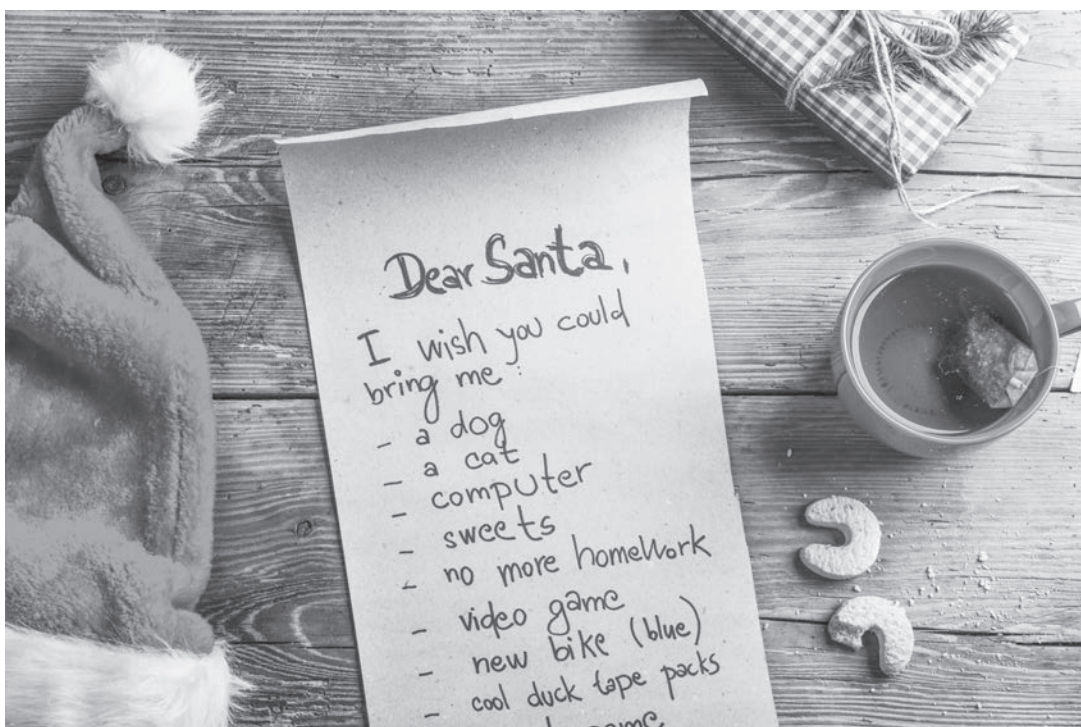 Dear Santa,
I wish you could
bring me :
- a dog
- a cat
- computer
- sweets
- no more homework
- video game
- new bike (blue)
- cool duck tape packs
game